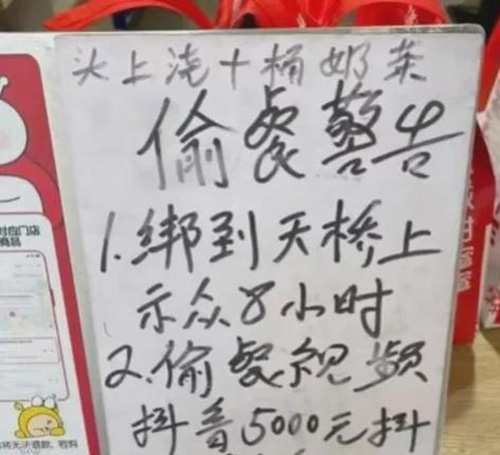 头上浇十桶奶茶
偷餐警告
1.绑到天桥上
示众8小时
2.偷餐视频
抖音5000元抖
对应门店
商品